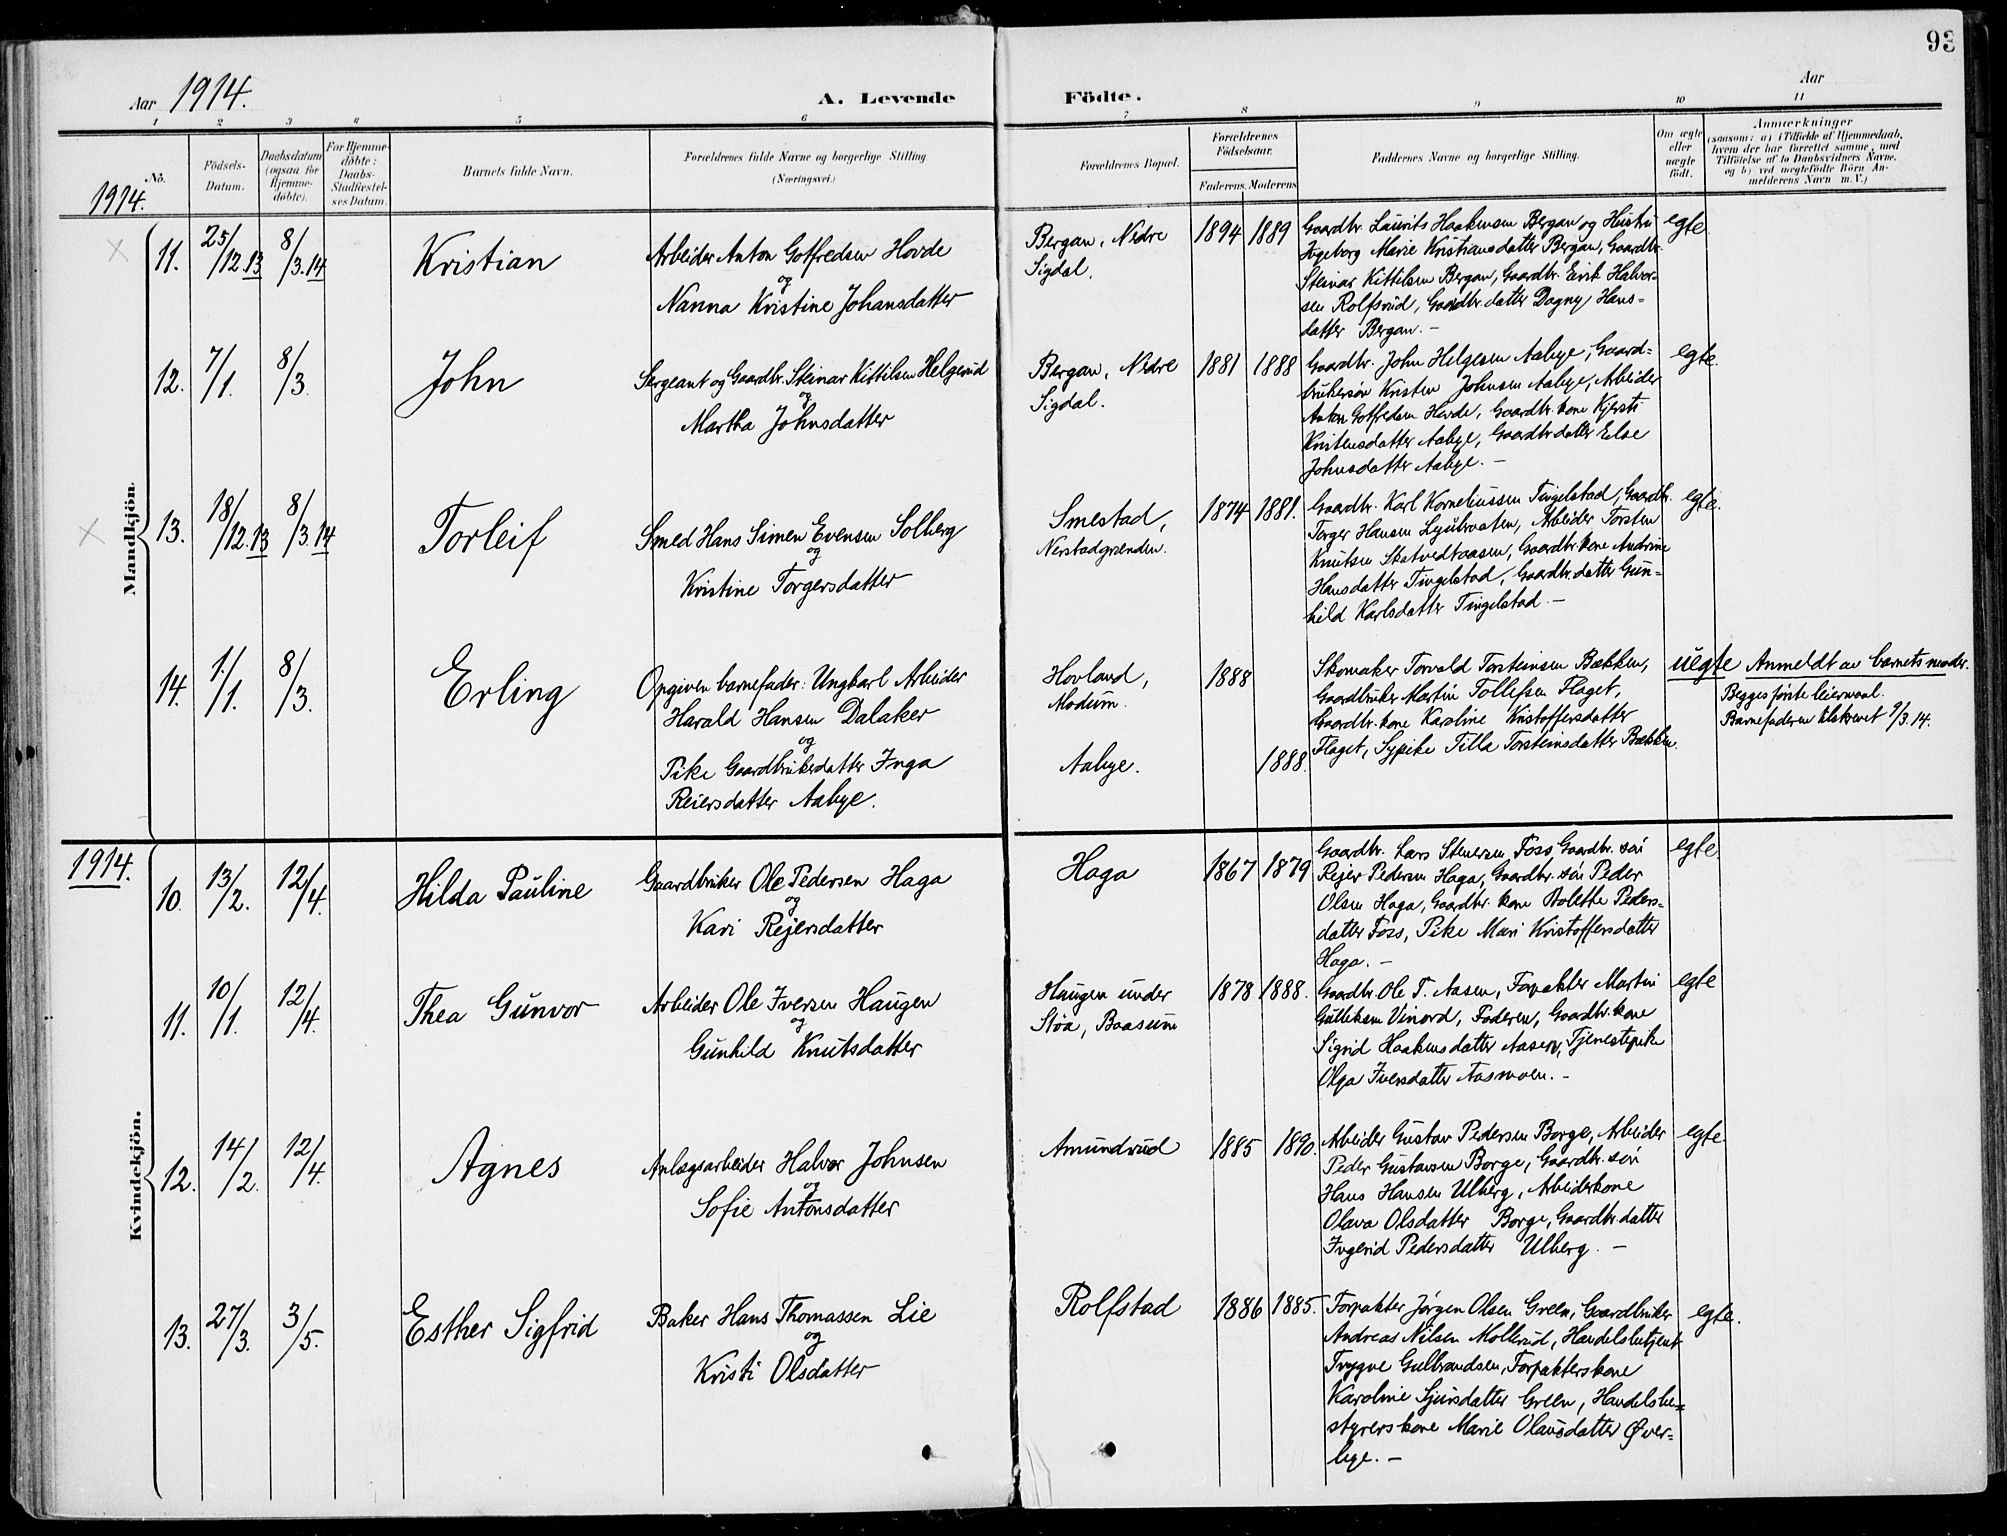 93
Aar 1914.
A. Levende Födte.
Aar
1 2 3 4 5 6 7 8 9 10 11
No.
Födsels-
Datum.
Daabsdatum
(ogsaa for
Hjemme-
döbte).
For Hjemme-
döbte:
Daabs-
Stadfæstel-
ses Datum.
Barnets fulde Navn.
Forældrenes fulde Navne og borgerlige Stilling
(Næringsvei.)
Forældrenes Bopæl.
Forældrenes
Födselsaar.
Faderens. Moderens
Faddernes Navne og borgerlige Stilling.
Om ægte
eller
uægte
födt.
Anmærkninger
(saasom: a) i Tilfælde af Hjemmedaab,
hvem der har forrettet samme, med
Tilföielse af to Daabsvidners Navne.
og b) ved uægtefödte Börn An-
melderens Navn m. V.)
1914.
Mandkjön.
11. 25/12.13 8/3.14 Kristian
Arbeider Anton Gotfredsen Hovde
og
Nanna Kristine Johansdatter
Bergan, Nedre
Sigdal.
1894 1889
Gaardbr. Laurits Haakensen Bergan og Hustru
Ingeborg Marie Kristiansdatter Bergan, Gaardbr.
Steinar Kittilsen Bergan, Gaardbr. Erik Halvor-
sen Rolfsrud, Gaardbr. datter Dagny Hans-
datter Bergan. -
egte
12. 7/1. 8/3. John
Sergeant og Gaardbr. Steinar Kittilsen Helgerud
og
Martha Johnsdatter
Bergan, Nedre
Sigdal.
1881 1888
Gaardbr. John Helgesen Aabye, Gaard-
brukersøn Kristen Johnsen Aabye, Arbeider
Anton Gotfredsen Hovde, Gaardbr. kone Kjersti
Kristensdatter Aabye, Gaardbr datter Else
Johnsdatter Aabye. -
egte.
13. 18/12.13 8/3.14 Torleif
Smed Hans Simen Evensen Solberg
og
Kristine Torgersdatter
Smestad,
Nerstadgrænden.
1874 1881.
Gaardbr. Karl Korneliussen Tingelstad, Gaardbr.
Torger Hansen, Arbeider Torsten
Knutsen Skatvedtaasen, Gaardbr. kone Andrine
Hansdatter Tingelstad, Gaardbr. datter Gun-
hild Karlsdatter Tingelstad. -
egte.
14. 1/1. 8/3. Erling
Opgiven barnefader: Ungkarl Arbeider
Harald Hansen Dalaker
og
Pike Gaardbrukerdatter Inga
Reiersdatter Aabye.
Hovland,
Modum.
Aabye.
1888
1888.
Skomaker Torvald Torsteinsen Bækken,
Gaardbruker Martin Tollefsen Flaget,
Gaardbr. kone Karoline Kristoffersdatter
Flaget, Sypike Tilla Torsteinsdatter Bækken.
uegte
Anmeldt av barnets moder.
Begges første leiermaal.
Barnefaderen tilskrevet 9/3.14.
1914.
Kvindekjön.
10. 13/2. 12/4. Hilda Pauline
Gaardbruker Ole Pedersen Haga
og
Kari Rejersdatter
Haga
1867 1879
Gaardbr. Lars Steversen Foss Gaardbr. søn
Rejer Pedersen Haga, Gaardbr. søn Peder
Olsen Haga, Gaardbr. kone Bolette Peders-
datter Foss, Pike Mari Kristoffersdatter
Haga. -
egte.
11. 10/1. 12/4. Thea Gunvor
Arbeider Ole Iversen Haugen
og
Gunhild Knutsdatter
Haugen under
Støa, Baasum
1878 1888.
Gaardbr. Ole T. Aasen, Forpakter Martin
Gulliksen Vinord, Faderen, Gaardbr. kone
Sigrid Haakensdatter Aasen, Tjenestepike
Olga Iversdatter Aasmoen. -
egte
12. 14/2. 12/4. Agnes
Anlægsarbeider Halvor Johnsen
og
Sofie Antonsdatter
Amundrud
1885 1890.
Arbeider Gustav Pedersen Borge, Arbeider
Peder Gustavsen Borge, Gaardbr. søn
Hans Hansen Ulberg, Arbeiderkone
Olava Olsdatter Borge, Gaardbr. datter
Ingerid Pedersdatter Ulberg. -
egte.
13. 27/3. 3/5. Esther Sigfrid
Baker Hans Thomassen Lie
og
Kristi Olsdatter
Rolfstad
1886 1885.
Forpakter Jørgen Olsen Green, Gaardbruker
Andreas Nilsen Mollerud, Handelsbetjent
Trygve Gulbrandsen, Forpakterskone
Karoline Sjursdatter Green, Handelsbe-
styrerskone Marie Olausdatter Øver-
bye. -
egte.